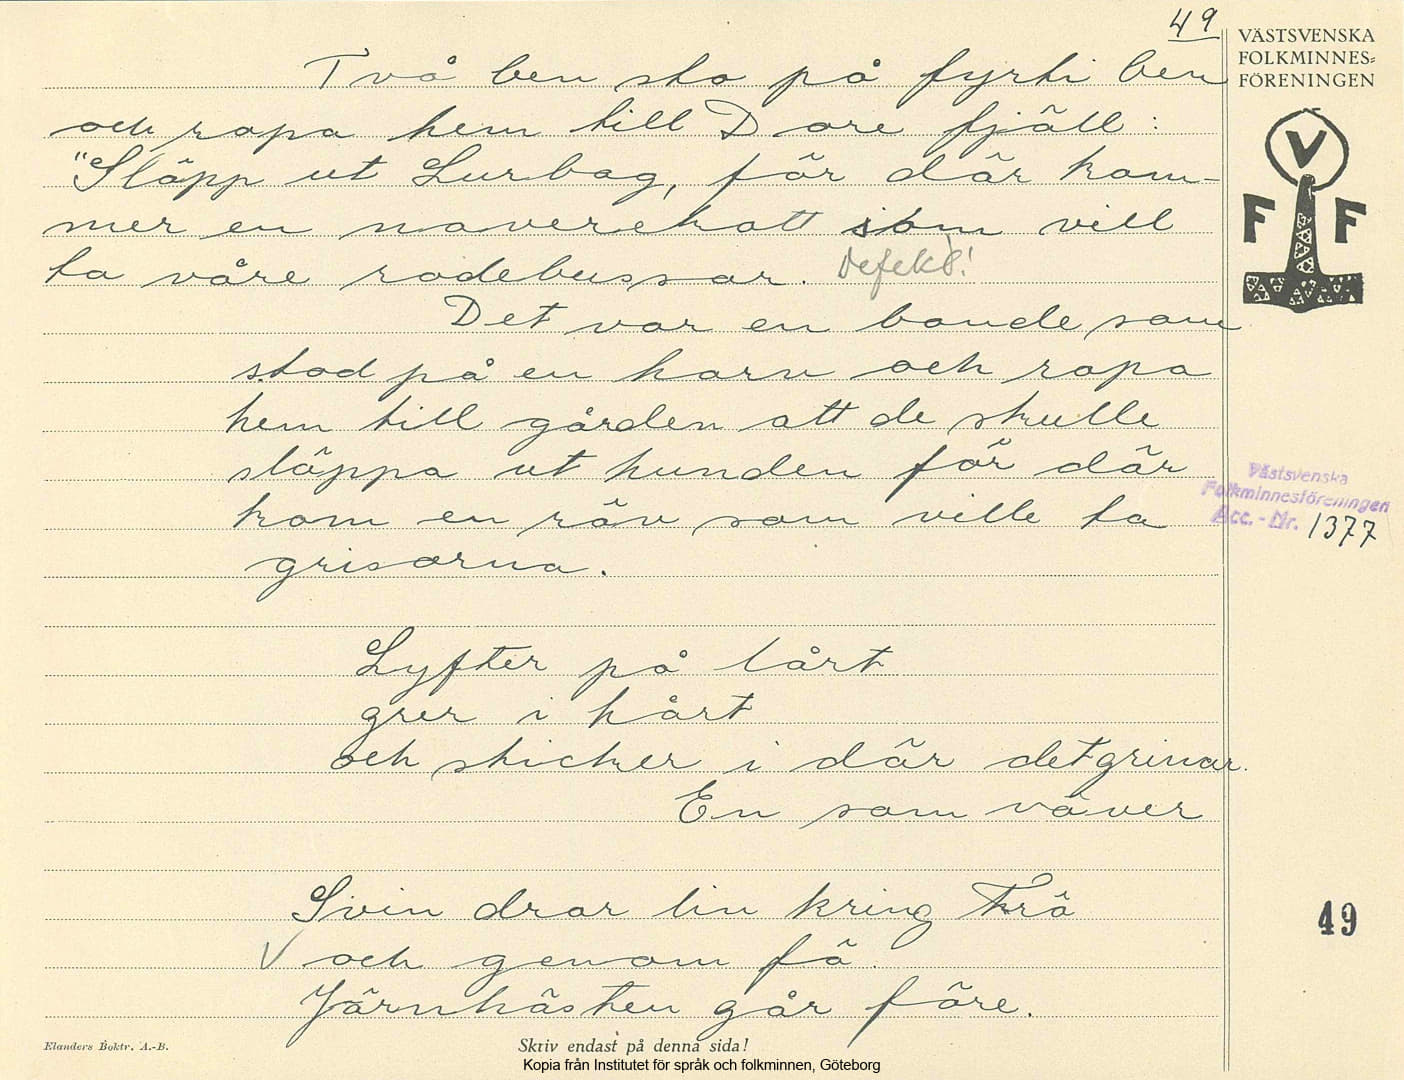 49
VÄSTSVENSKA
FOLKMINNES-
FÖRENINGEN
V
F F
Två ben sto på fyrti ben
och ropa hem till Dore fjäll:
"Släpp ut Lurbag, för där kom-
mer en naverekatt som vill
ta våre rodebussar. Defekt!
Det var en bonde som
stod på en harv och ropa
hem till gården att de skulle
släppa ut hunden för där
kom en räv som ville ta
grisarna.
Västsvenska
Folkminnesföreningen
Acc.-Nr. 1377
Lyfter på lårt
grer i hårt
och sticker i där det grinar.
En som väver
Svin drar lin kring trä
V och genom fä.
Järnhästen går före.
49
Elanders Boktr. A.-B.
Skriv endast på denna sida!
Kopia från Institutet för språk och folkminnen, Göteborg